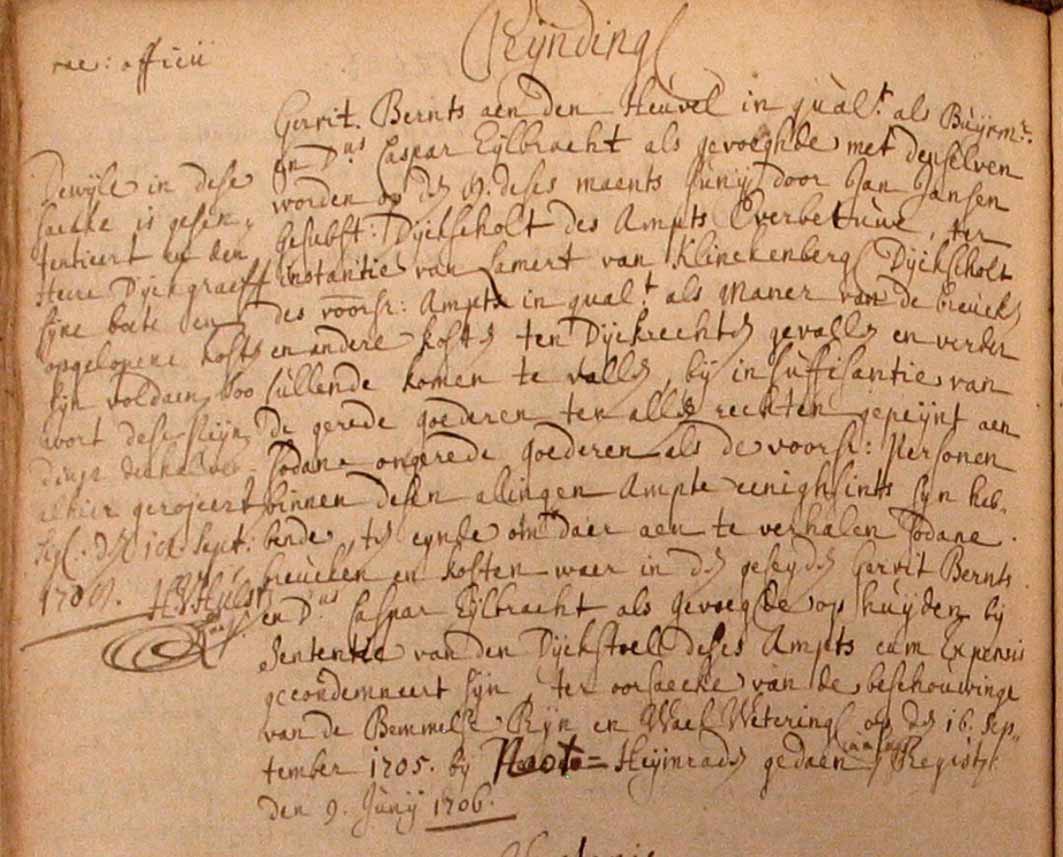 Peijnding
rae: officii
Gerrit Bernts aen den Heuvel in qual.t als Buijrmr.
en D.us Caspar Eijlbracht als gevoeghde met denselven
worden op den 9. deses maents Junij door Jan Jansen
gesubst: Dijckscholt des Ampts Overbetuwe, ter
instantie van Lamert van Klinckenberg Dijckscholt
des voorsr: Ampts in qual.t als Maner van de breucken
en andere kosten ten Dijckrechten gevallen en verder
sullende komen te vallen, bij insuffisantie van
de gerede goederen ten allen rechten gepeijnt aen
sodane ongerede goederen als de voorsr: Personen
binnen desen alingen Ampte eenighsints sijn heb„
bende, ten eynde om daer aen te verhalen sodane
breucken en kosten waer in den geseyden Gerrit Bernts
en D.us Caspar Eijlbracht als gevoegde op huijden bij
Sententie van den Dijckstoel deses Ampts cum Expensis
gecondemneert sijn, ter oorsaecke van de beschouwinge
van de Bemmelse Rijn en Wael Wetering op den 16. Sep„
tember 1705. by Heijmraden gedaen Registr.
den 9. Junij 1706.
Dewijle in dese
saecke is gesen„
tentieert en den
Heere Dijckgraeff
sijne boete en
opgelopene kosten
sijn voldaen, soo
wort dese Peijn„
dinge derhalven
alhier gerojeert
Sig. den 10 Sept:
H V Hulst